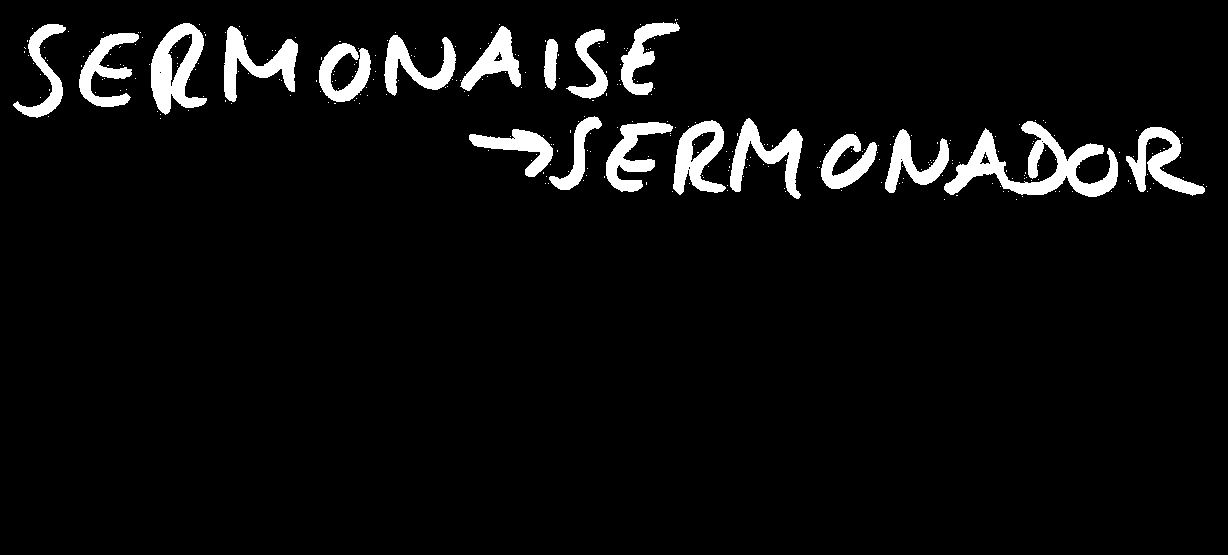 SERMONAISE
→SERMONADOR